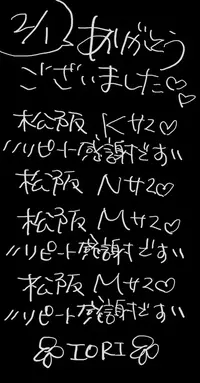 2/1 ありがとう
ございました♡♡
松阪 Kサマ♡
〃リピート感謝です〃
松阪 Nサマ♡
松阪 Mサマ♡
〃リピート感謝です〃
松阪 Mサマ♡
〃リピート感謝です〃
IORI